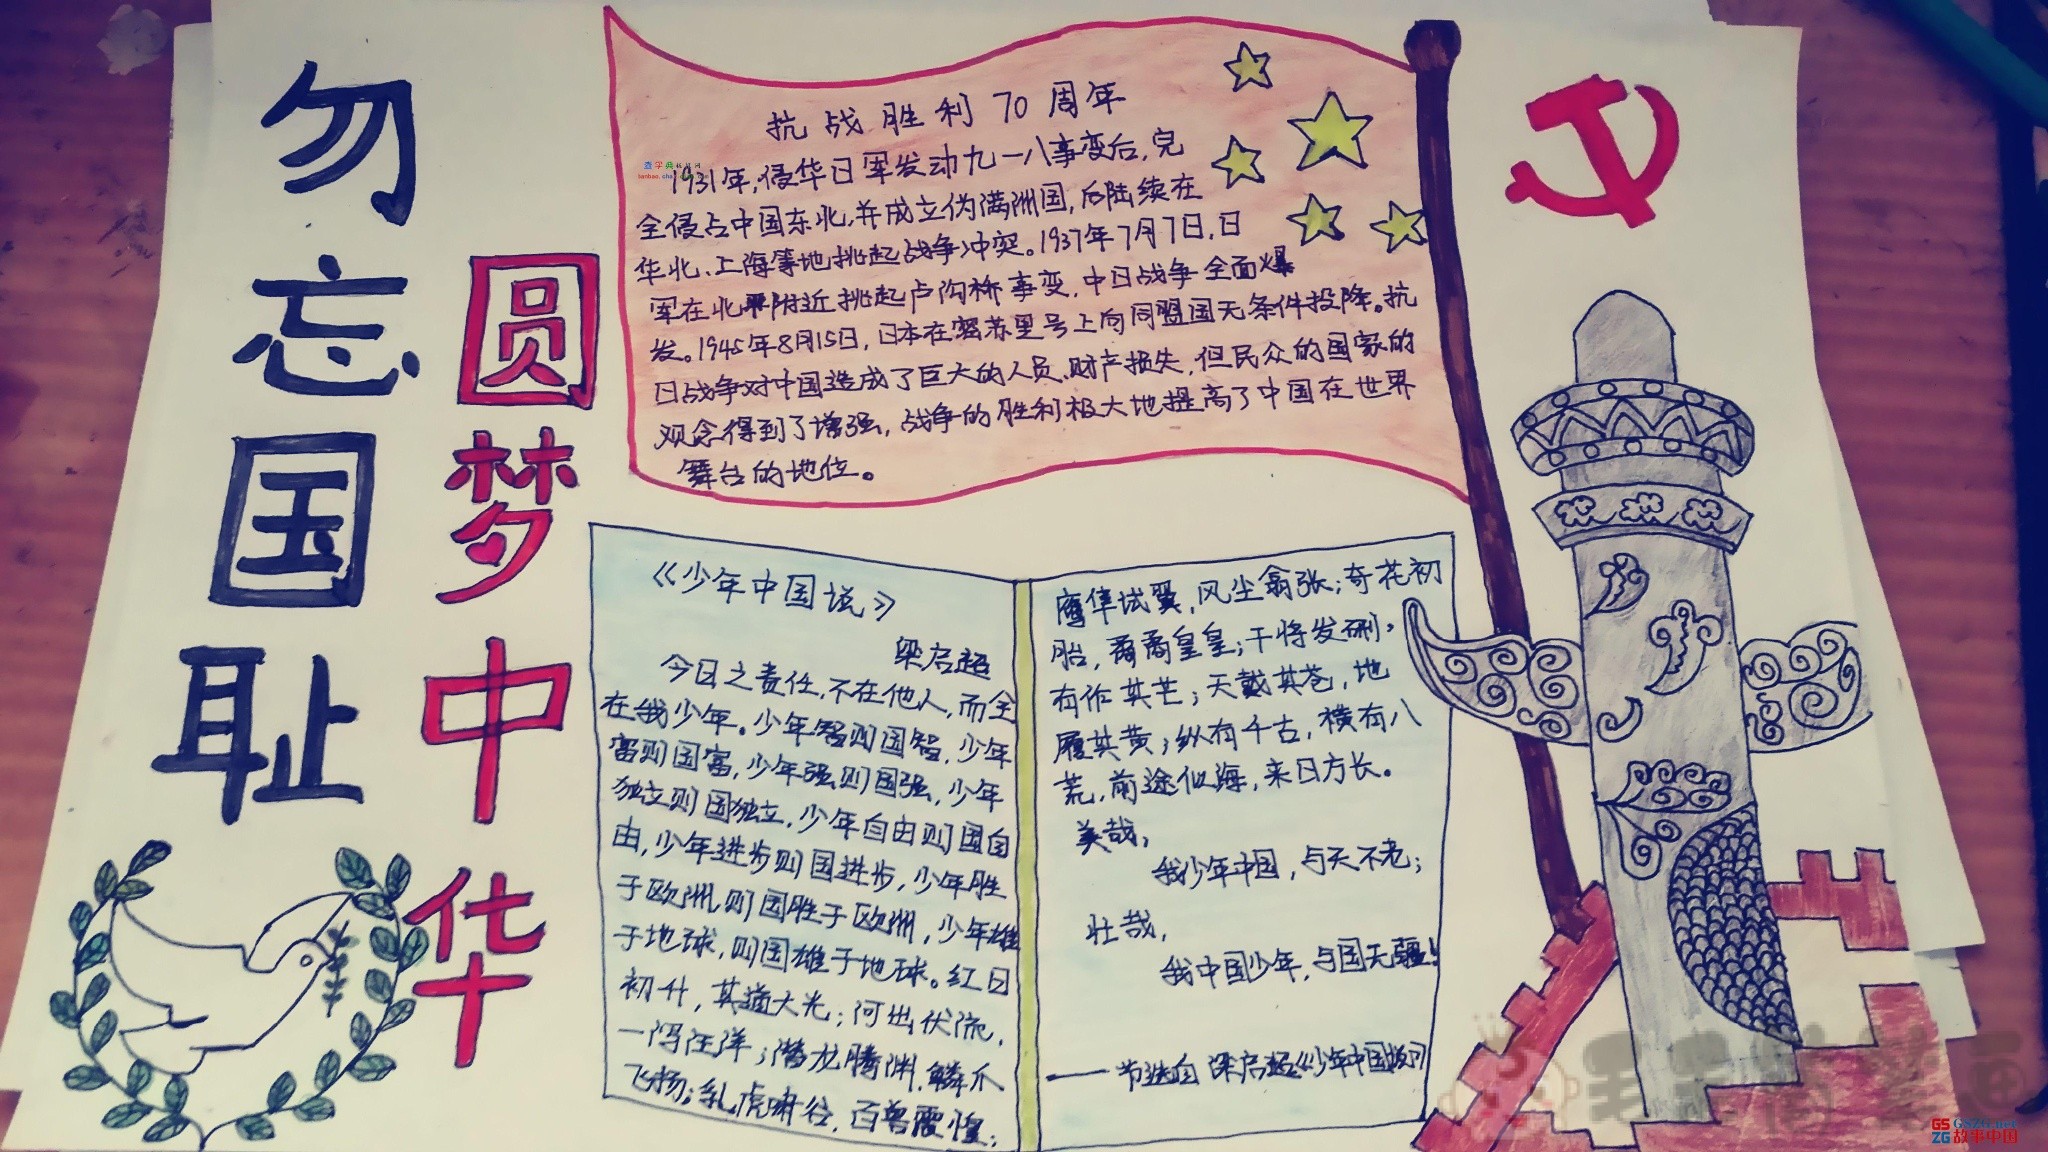 勿忘国耻
圆梦中华
抗战胜利70周年
1931年,侵华日军发动九一八事变后,完
全侵占中国东北,并成立伪满洲国,后陆续在
华北、上海等地挑起战争冲突。1937年7月7日,日
军在北平附近挑起卢沟桥事变,中日战争全面爆
发。1945年8月15日,日本在密苏里号上向同盟国无条件投降。抗
日战争对中国造成了巨大的人员、财产损失,但民众的国家的
观念得到了增强,战争的胜利极大地提高了中国在世界
舞台的地位。
《少年中国说》
梁启超
今日之责任,不在他人,而全
在我少年。少年智则国智,少年
富则国富,少年强则国强,少年
独立则国独立,少年自由则国自
由,少年进步则国进步,少年胜
于欧洲,则国胜于欧洲,少年雄
于地球,则国雄于地球。红日
初升,其道大光;河出伏流,
一泻汪洋;潜龙腾渊,鳞爪
飞扬;乳虎啸谷,百兽震惶;
鹰隼试翼,风尘翕张;奇花初
胎,矞矞皇皇;干将发硎,
有作其芒;天戴其苍,地
履其黄;纵有千古,横有八
荒,前途似海,来日方长。
美哉,
我少年中国,与天不老;
壮哉,
我中国少年,与国无疆!
——节选自 梁启超《少年中国说》
GSZG.net
GSZG 故事中国